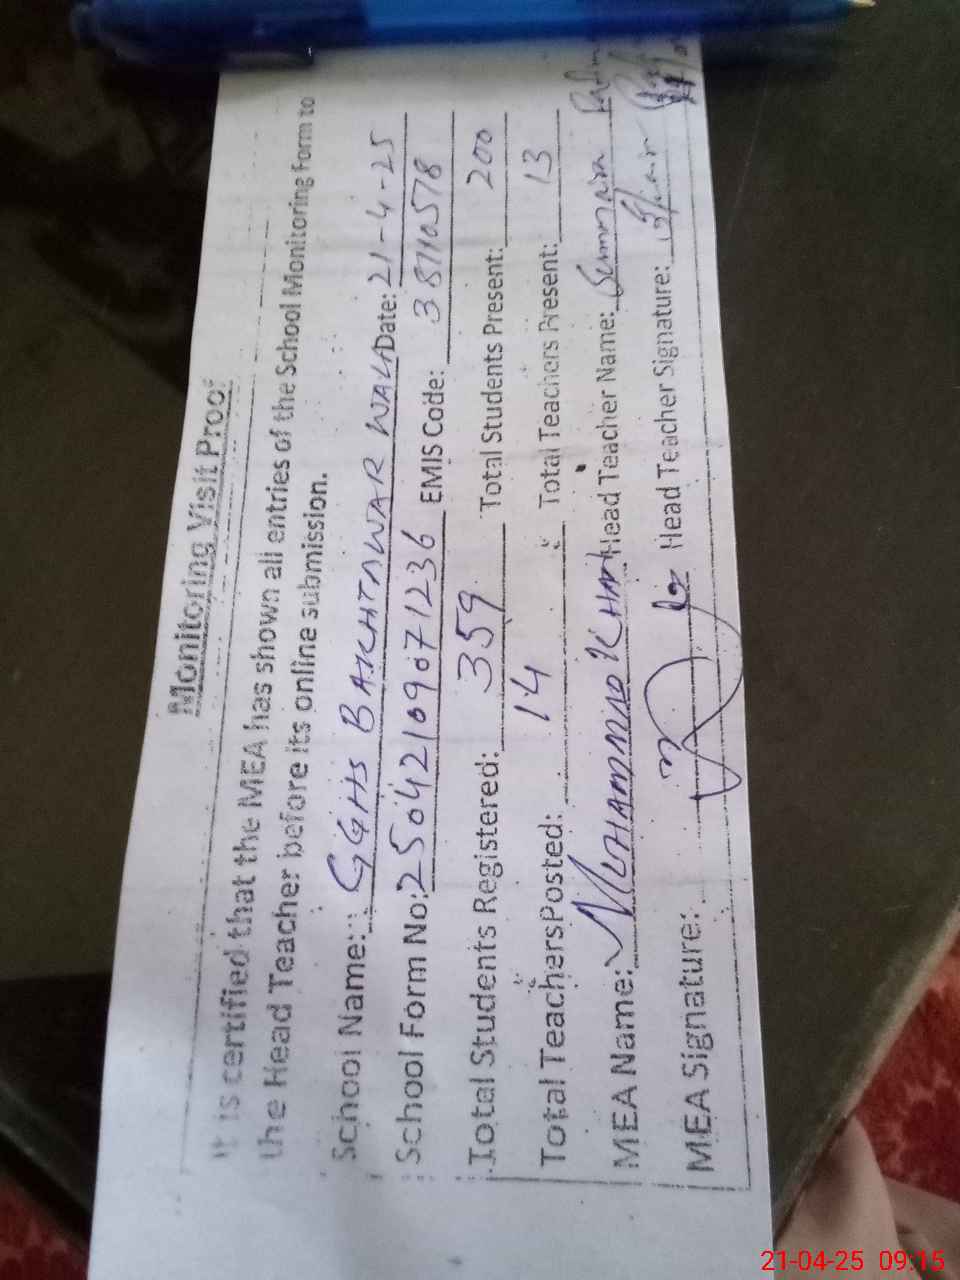 Monitoring Visit Proof
It is certified that the MEA has shown all entries of the School Monitoring Form to
the Head Teacher before its online submission.
School Name: GGHS BAKHTAWAR WALI Date: 21-4-25
School Form No: 25042109071236 EMIS Code: 38110578
Total Students Registered: 359 Total Students Present: 200
Total Teachers Posted: 14 Total Teachers Present: 13
MEA Name: MUHAMMAD KHAN Head Teacher Name:
MEA Signature: Head Teacher Signature:
21-04-25 09:15